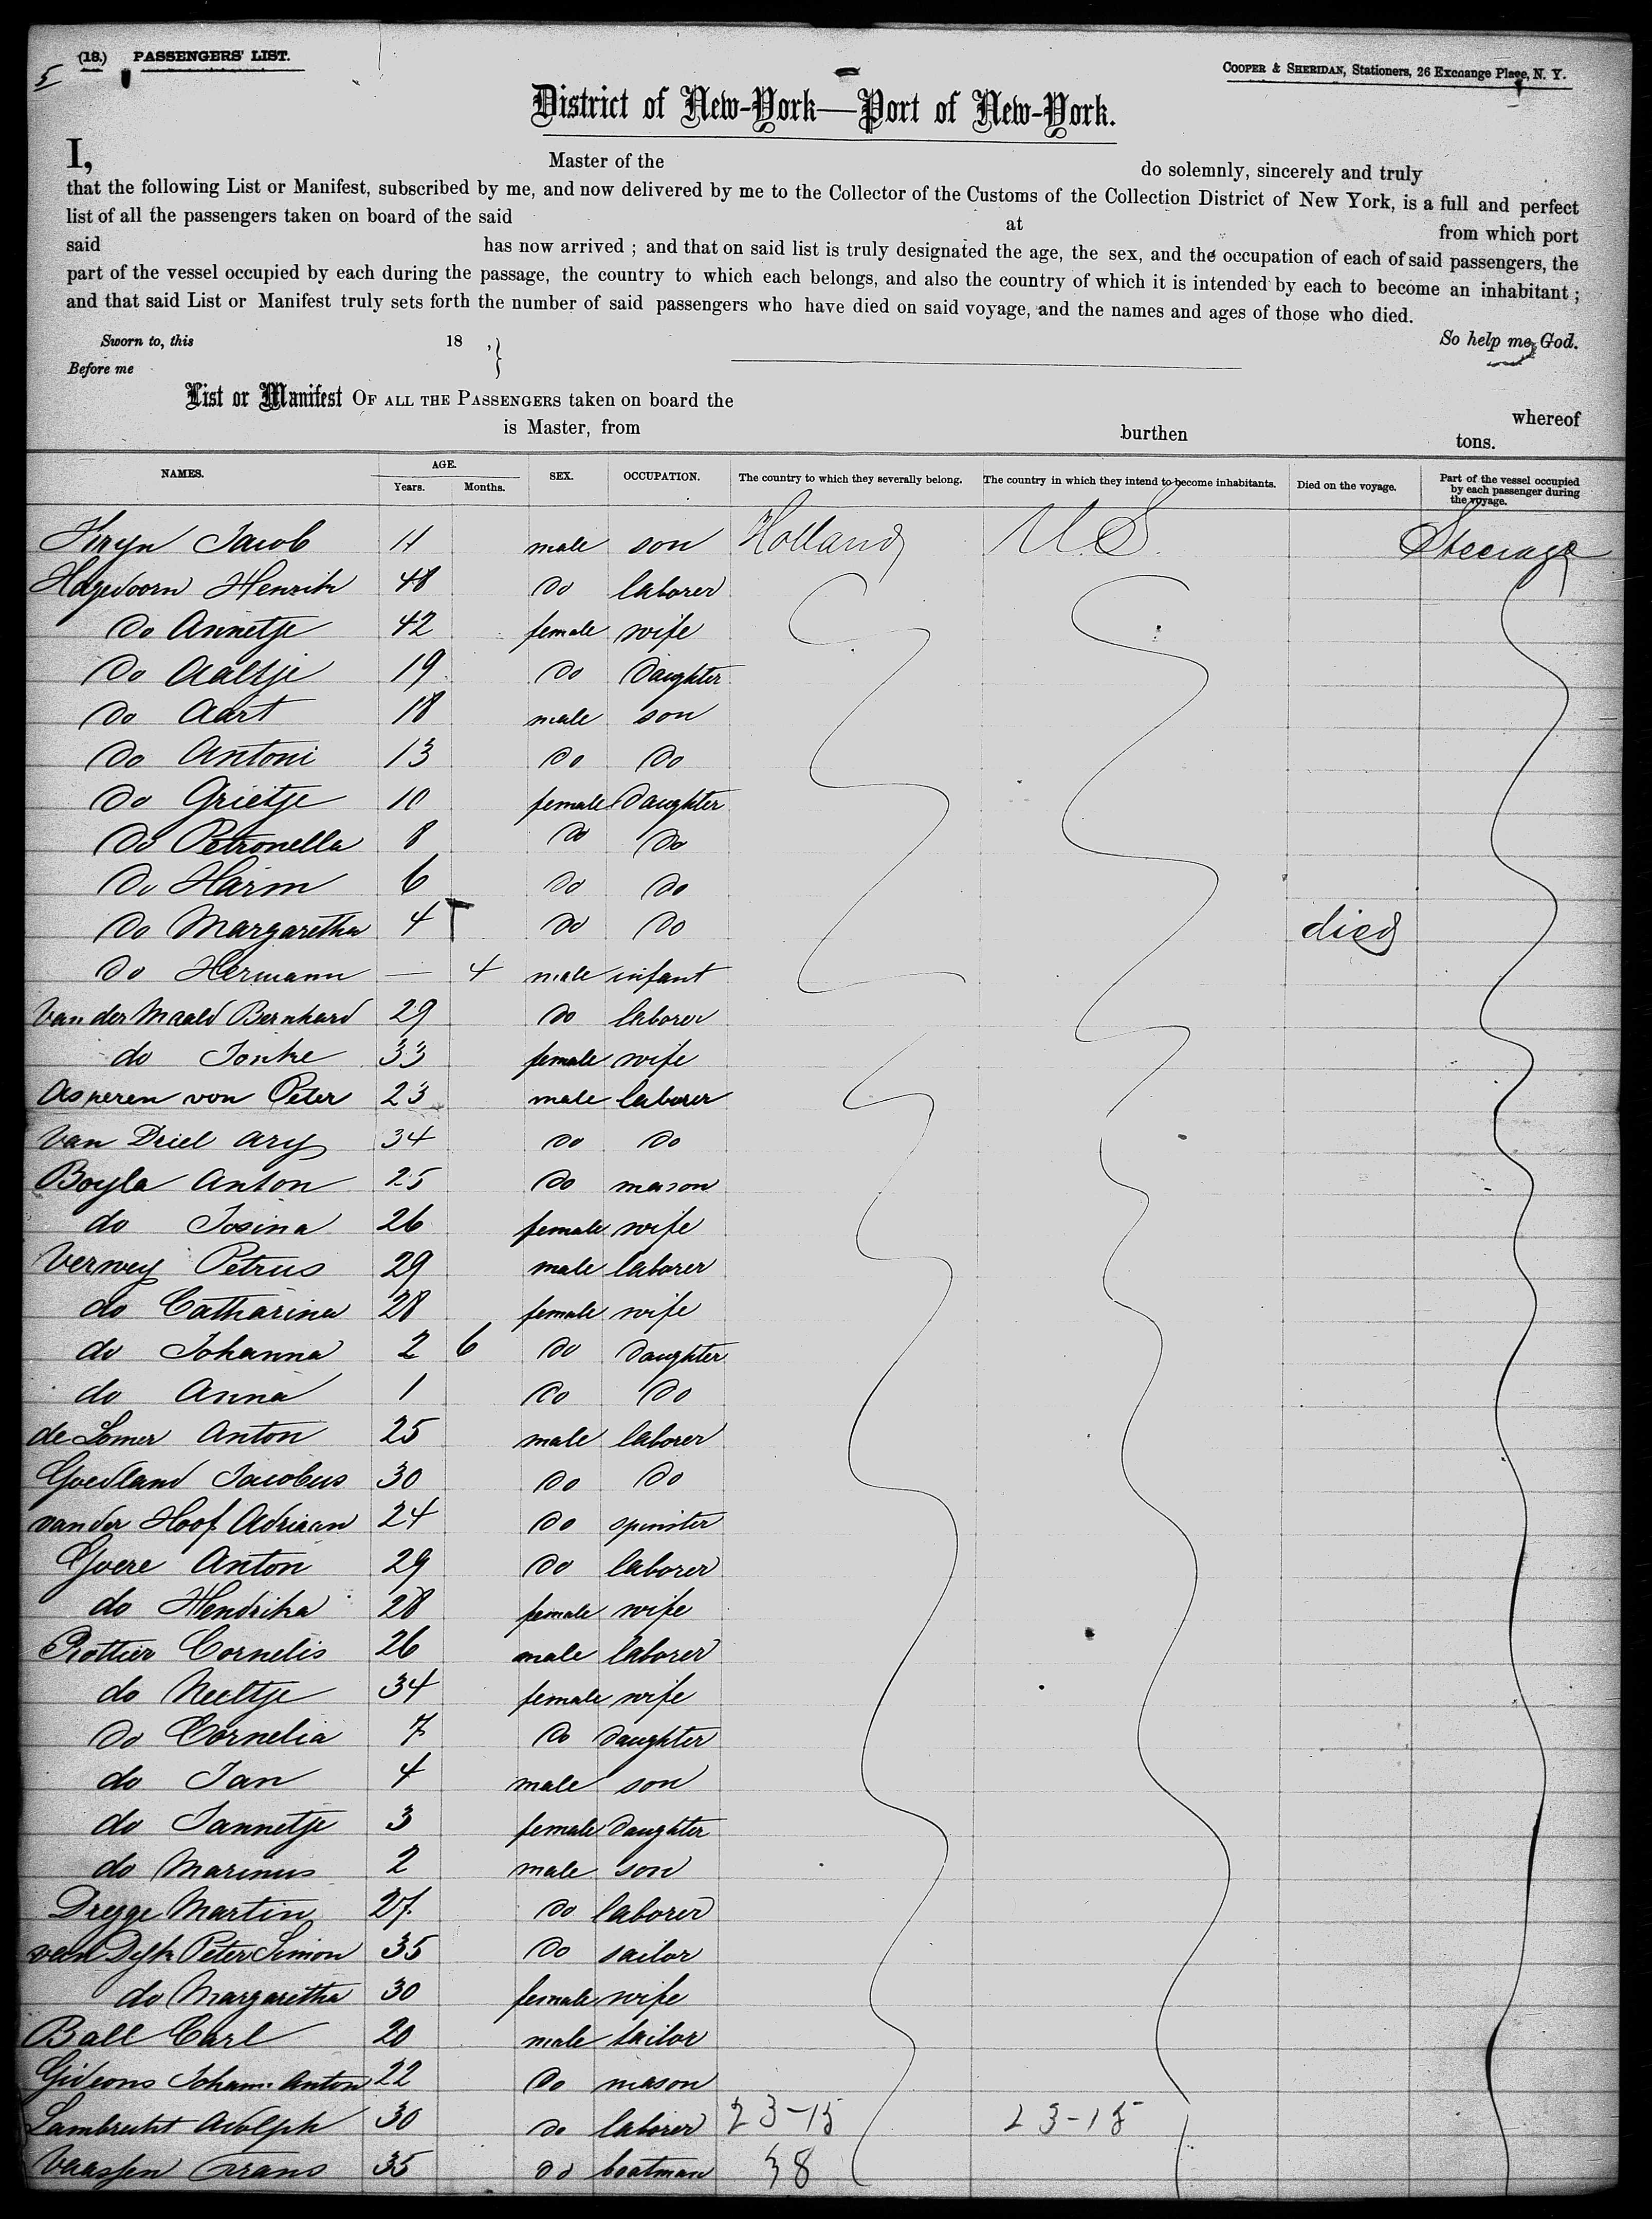 5
(18.) PASSENGERS' LIST.
COOPER & SHERIDAN, Stationers, 26 Exchange Place, N. Y.
District of New-York—Port of New-York.
I, Master of the do solemnly, sincerely and truly
that the following List or Manifest, subscribed by me, and now delivered by me to the Collector of the Customs of the Collection District of New York, is a full and perfect
list of all the passengers taken on board of the said at from which port
said has now arrived ; and that on said list is truly designated the age, the sex, and the occupation of each of said passengers, the
part of the vessel occupied by each during the passage, the country to which each belongs, and also the country of which it is intended by each to become an inhabitant ;
and that said List or Manifest truly sets forth the number of said passengers who have died on said voyage, and the names and ages of those who died.
Sworn to, this 18 , } So help me God.
Before me
List or Manifest OF ALL THE PASSENGERS taken on board the whereof
is Master, from burthen tons.
NAMES. AGE. Years. Months. SEX. OCCUPATION. The country to which they severally belong. The country in which they intend to become inhabitants. Died on the voyage. Part of the vessel occupied by each passenger during the voyage.
Jacob 11 male son Holland U.S. Steerage
Hagedoorn Henrik 48 do laborer
do Annetje 42 female wife
do Aaltje 19 do daughter
do Aart 18 male son
do Antoni 13 do do
do Grietje 10 female daughter
do Petronella 8 do do
do Harm 6 do do
do Margaretha 4 do do died
do Hermann — 4 male infant
Van der Maald Bernhard 29 do laborer
do Jonke 33 female wife
Asperen von Peter 23 male laborer
Van Driel Ary 34 do do
Boyla Anton 25 do mason
do Josina 26 female wife
Verwey Petrus 29 male laborer
do Catharina 28 female wife
do Johanna 2 6 do daughter
do Anna 1 do do
de Lomer Anton 25 male laborer
Goedland Jacobus 30 do do
van der Hoof Adriaan 24 do spinster
Goere Anton 29 do laborer
do Hendrika 28 female wife
Rottier Cornelis 26 male laborer
do Neeltje 34 female wife
do Cornelia 7 do daughter
do Jan 4 male son
do Jannetje 3 female daughter
do Marinus 2 male son
Dregge Martin 27 do laborer
van Dyk Peter Simon 35 do sailor
do Margaretha 30 female wife
Ball Carl 20 male tailor
Gideons Johann Anton 22 do mason
Lambrecht Adolph 30 do laborer 23-15 23-15
Vaassen Frans 35 do boatman 38